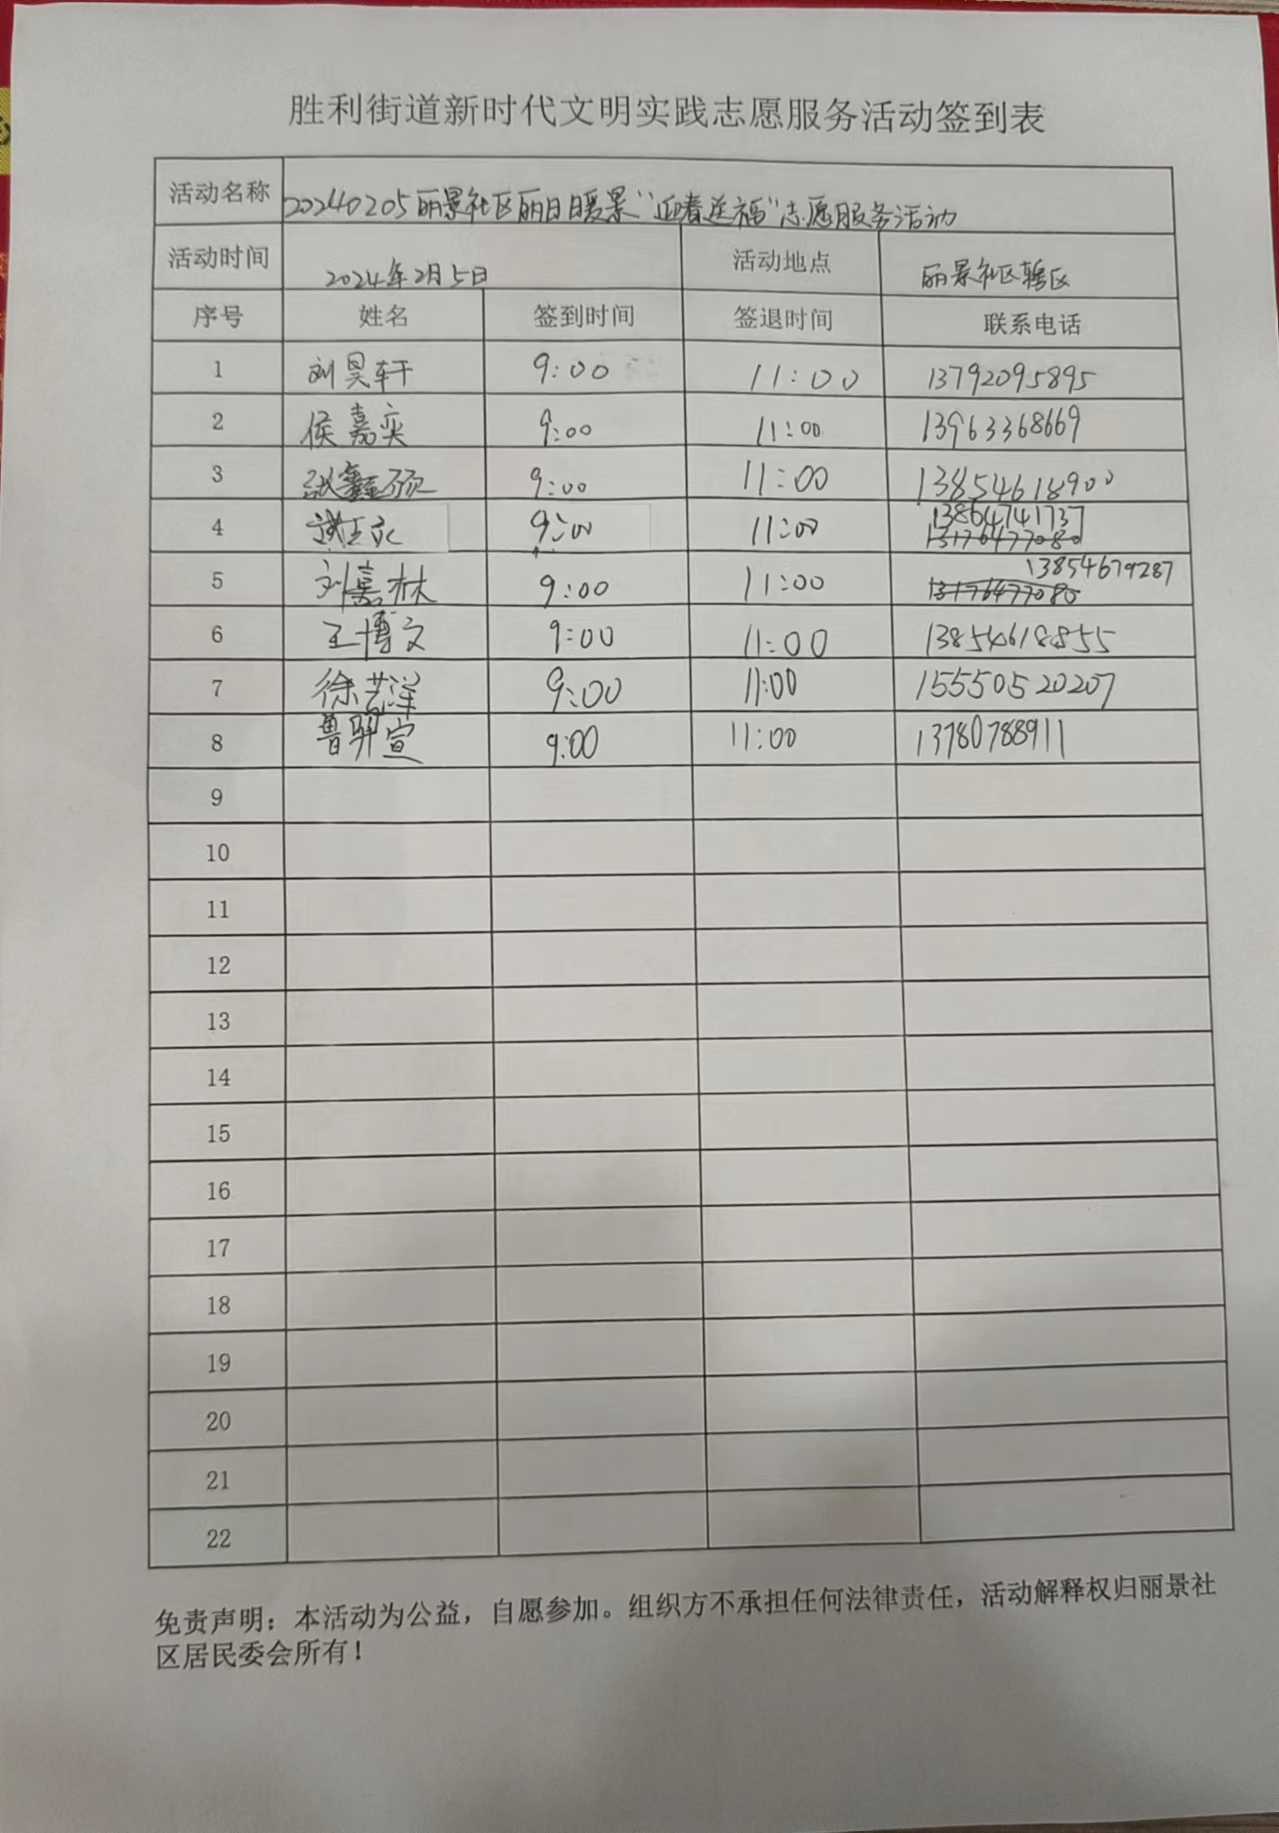 胜利街道新时代文明实践志愿服务活动签到表
活动名称 20240205丽景社区丽日暖景“迎春送福”志愿服务活动
活动时间 2024年2月5日 活动地点 丽景社区辖区
序号 姓名 签到时间 签退时间 联系电话
1 刘昊轩 9:00 11:00 13792095895
2 侯嘉奕 9:00 11:00 13963368669
3 张鑫硕 9:00 11:00 13854618900
4 9:00 11:00 13864741737
13176477080
5 刘嘉林 9:00 11:00 13854679287
13176477080
6 王博文 9:00 11:00 13854618855
7 徐艺洋 9:00 11:00 15550520207
8 鲁羿宣 9:00 11:00 13780788911
9
10
11
12
13
14
15
16
17
18
19
20
21
22
免责声明：本活动为公益，自愿参加。组织方不承担任何法律责任，活动解释权归丽景社
区居民委会所有！